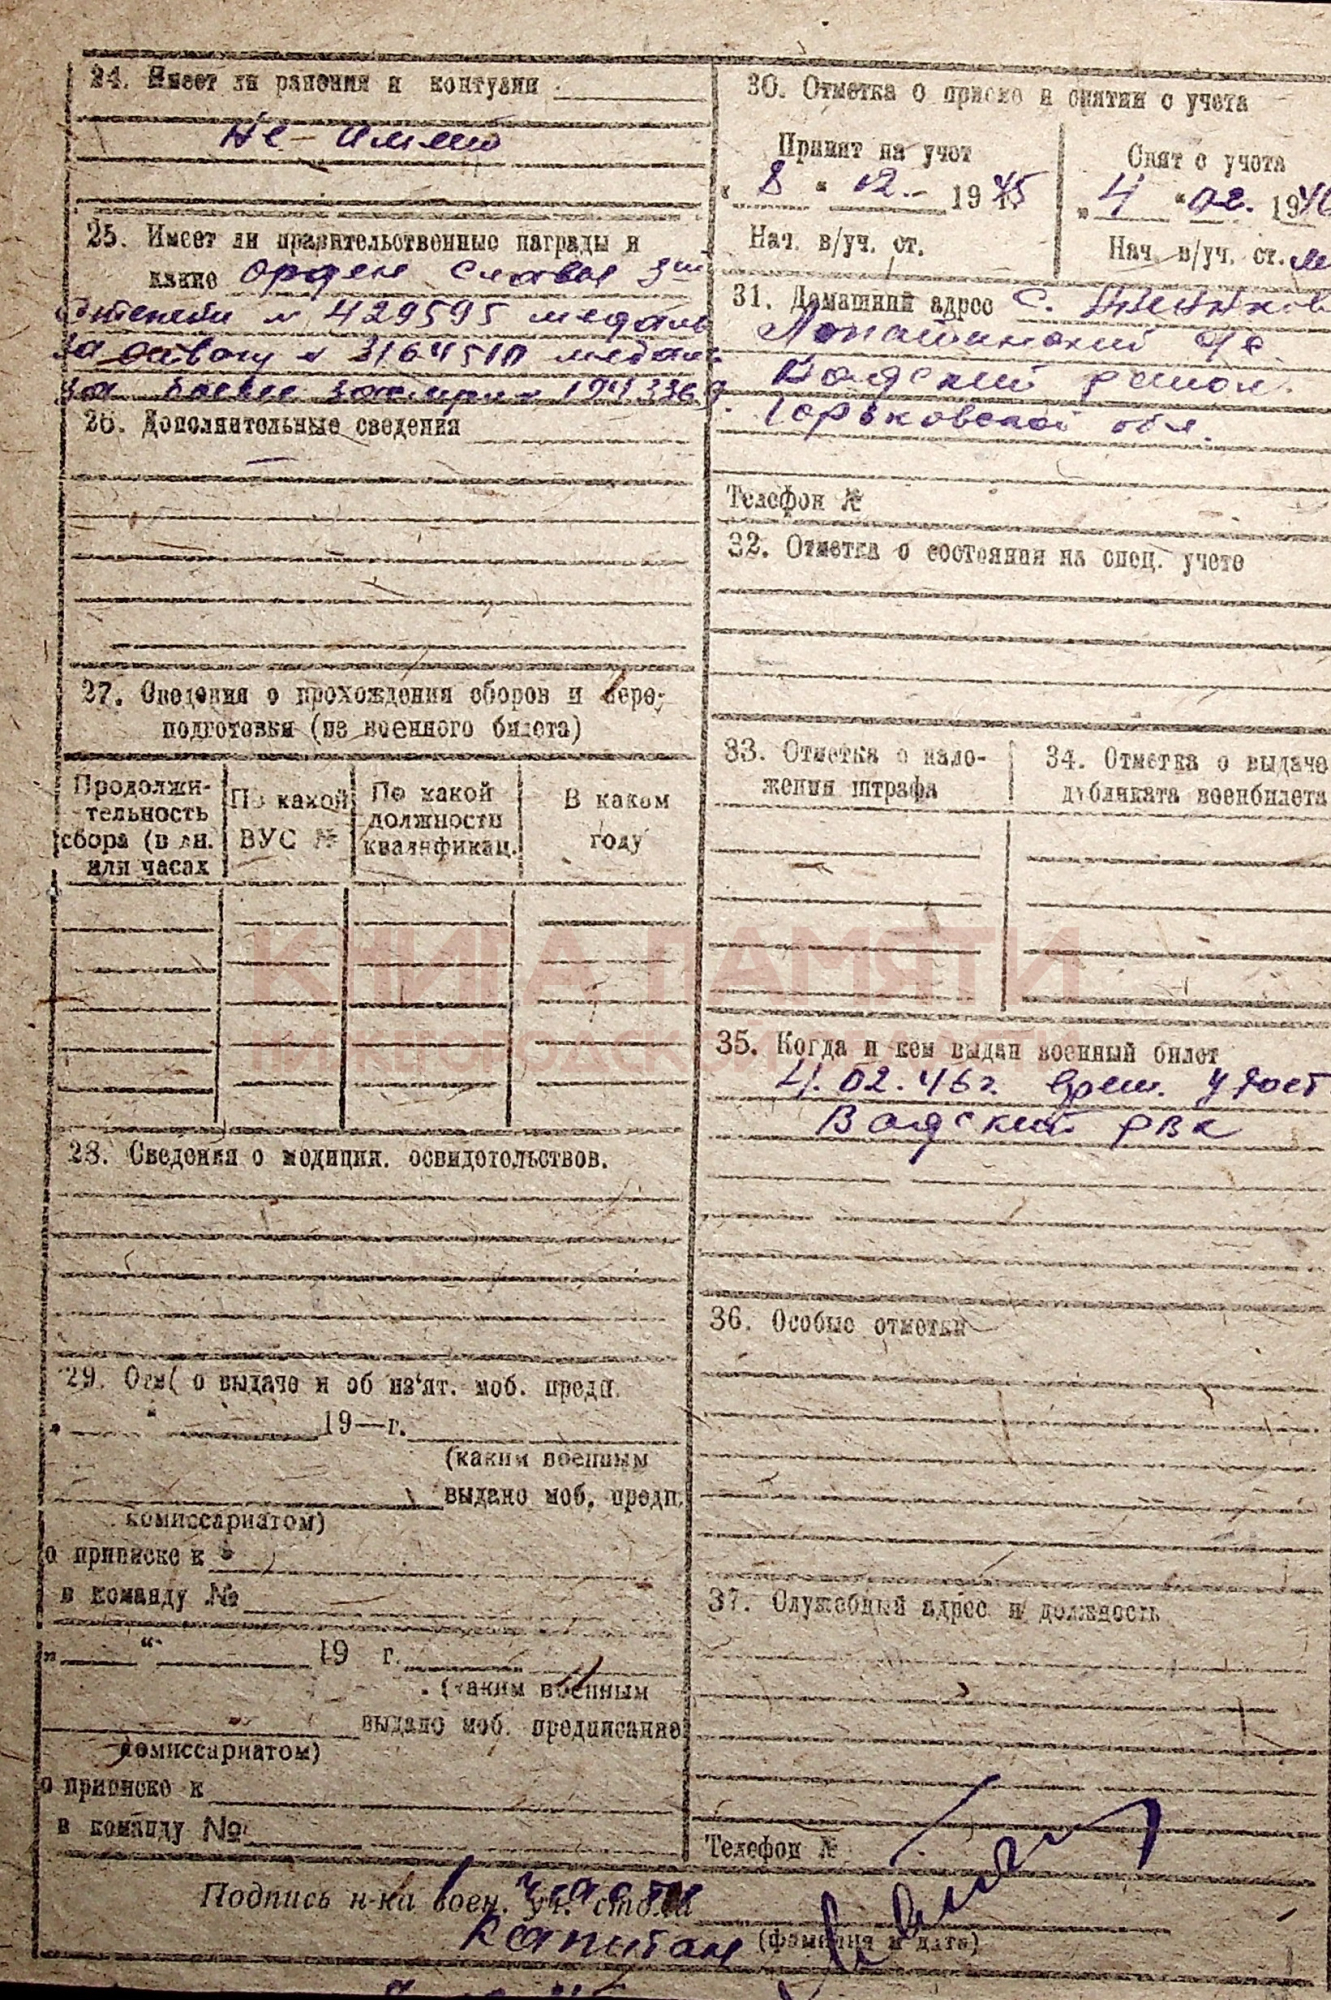 24. Имеет ли ранения и контузии
Не имею
25. Имеет ли правительственные награды и
какие орден Славы 3й
степени № 429595 медаль
за отвагу № 3164510 медаль
за боевые
26. Дополнительные сведения
27. Сведения о прохождения сборов и пере-
подготовки (из военного билета)
Продолжи-
тельность
сбора (в дн.
или часах
По какой
ВУС №
По какой
должности
квалификац.
В каком
году
28. Сведения о медицин. освидетельствов.
29. Отм( о выдаче и об из'ят. моб. предп.
„ “ 19—г.
(каким военным
выдано моб. предп.
комиссариатом)
о приписке к
в команду №
„ “ 19 г.
(каким военным
выдано моб. предписание
комиссариатом)
о приписке к
в команду №
30. Отметка о приеме и снятии с учета
Принят на учет
„ 8 “ 12. 1945
Нач. в/уч. ст.
Снят с учета
„ 4 “ 02. 194
Нач. в/уч. ст.
31. Домашний адрес с.
Вадский район
Горьковской обл.
Телефон №
32. Отметка о состоянии на спец. учете
33. Отметка о нало-
жения штрафа
34. Отметка о выдаче
дубликата военбилета
35. Когда и кем выдан военный билет
4.02.46г. врем. удост
Вадский РВК
36. Особые отметки
37. Служебный адрес и должность
Телефон №
Подпись н-ка воен. уч. стола
части
капитан
(фамилия и дата)
КНИГА ПАМЯТИ
НИЖЕГОРОДСКОЙ ОБЛАСТИ